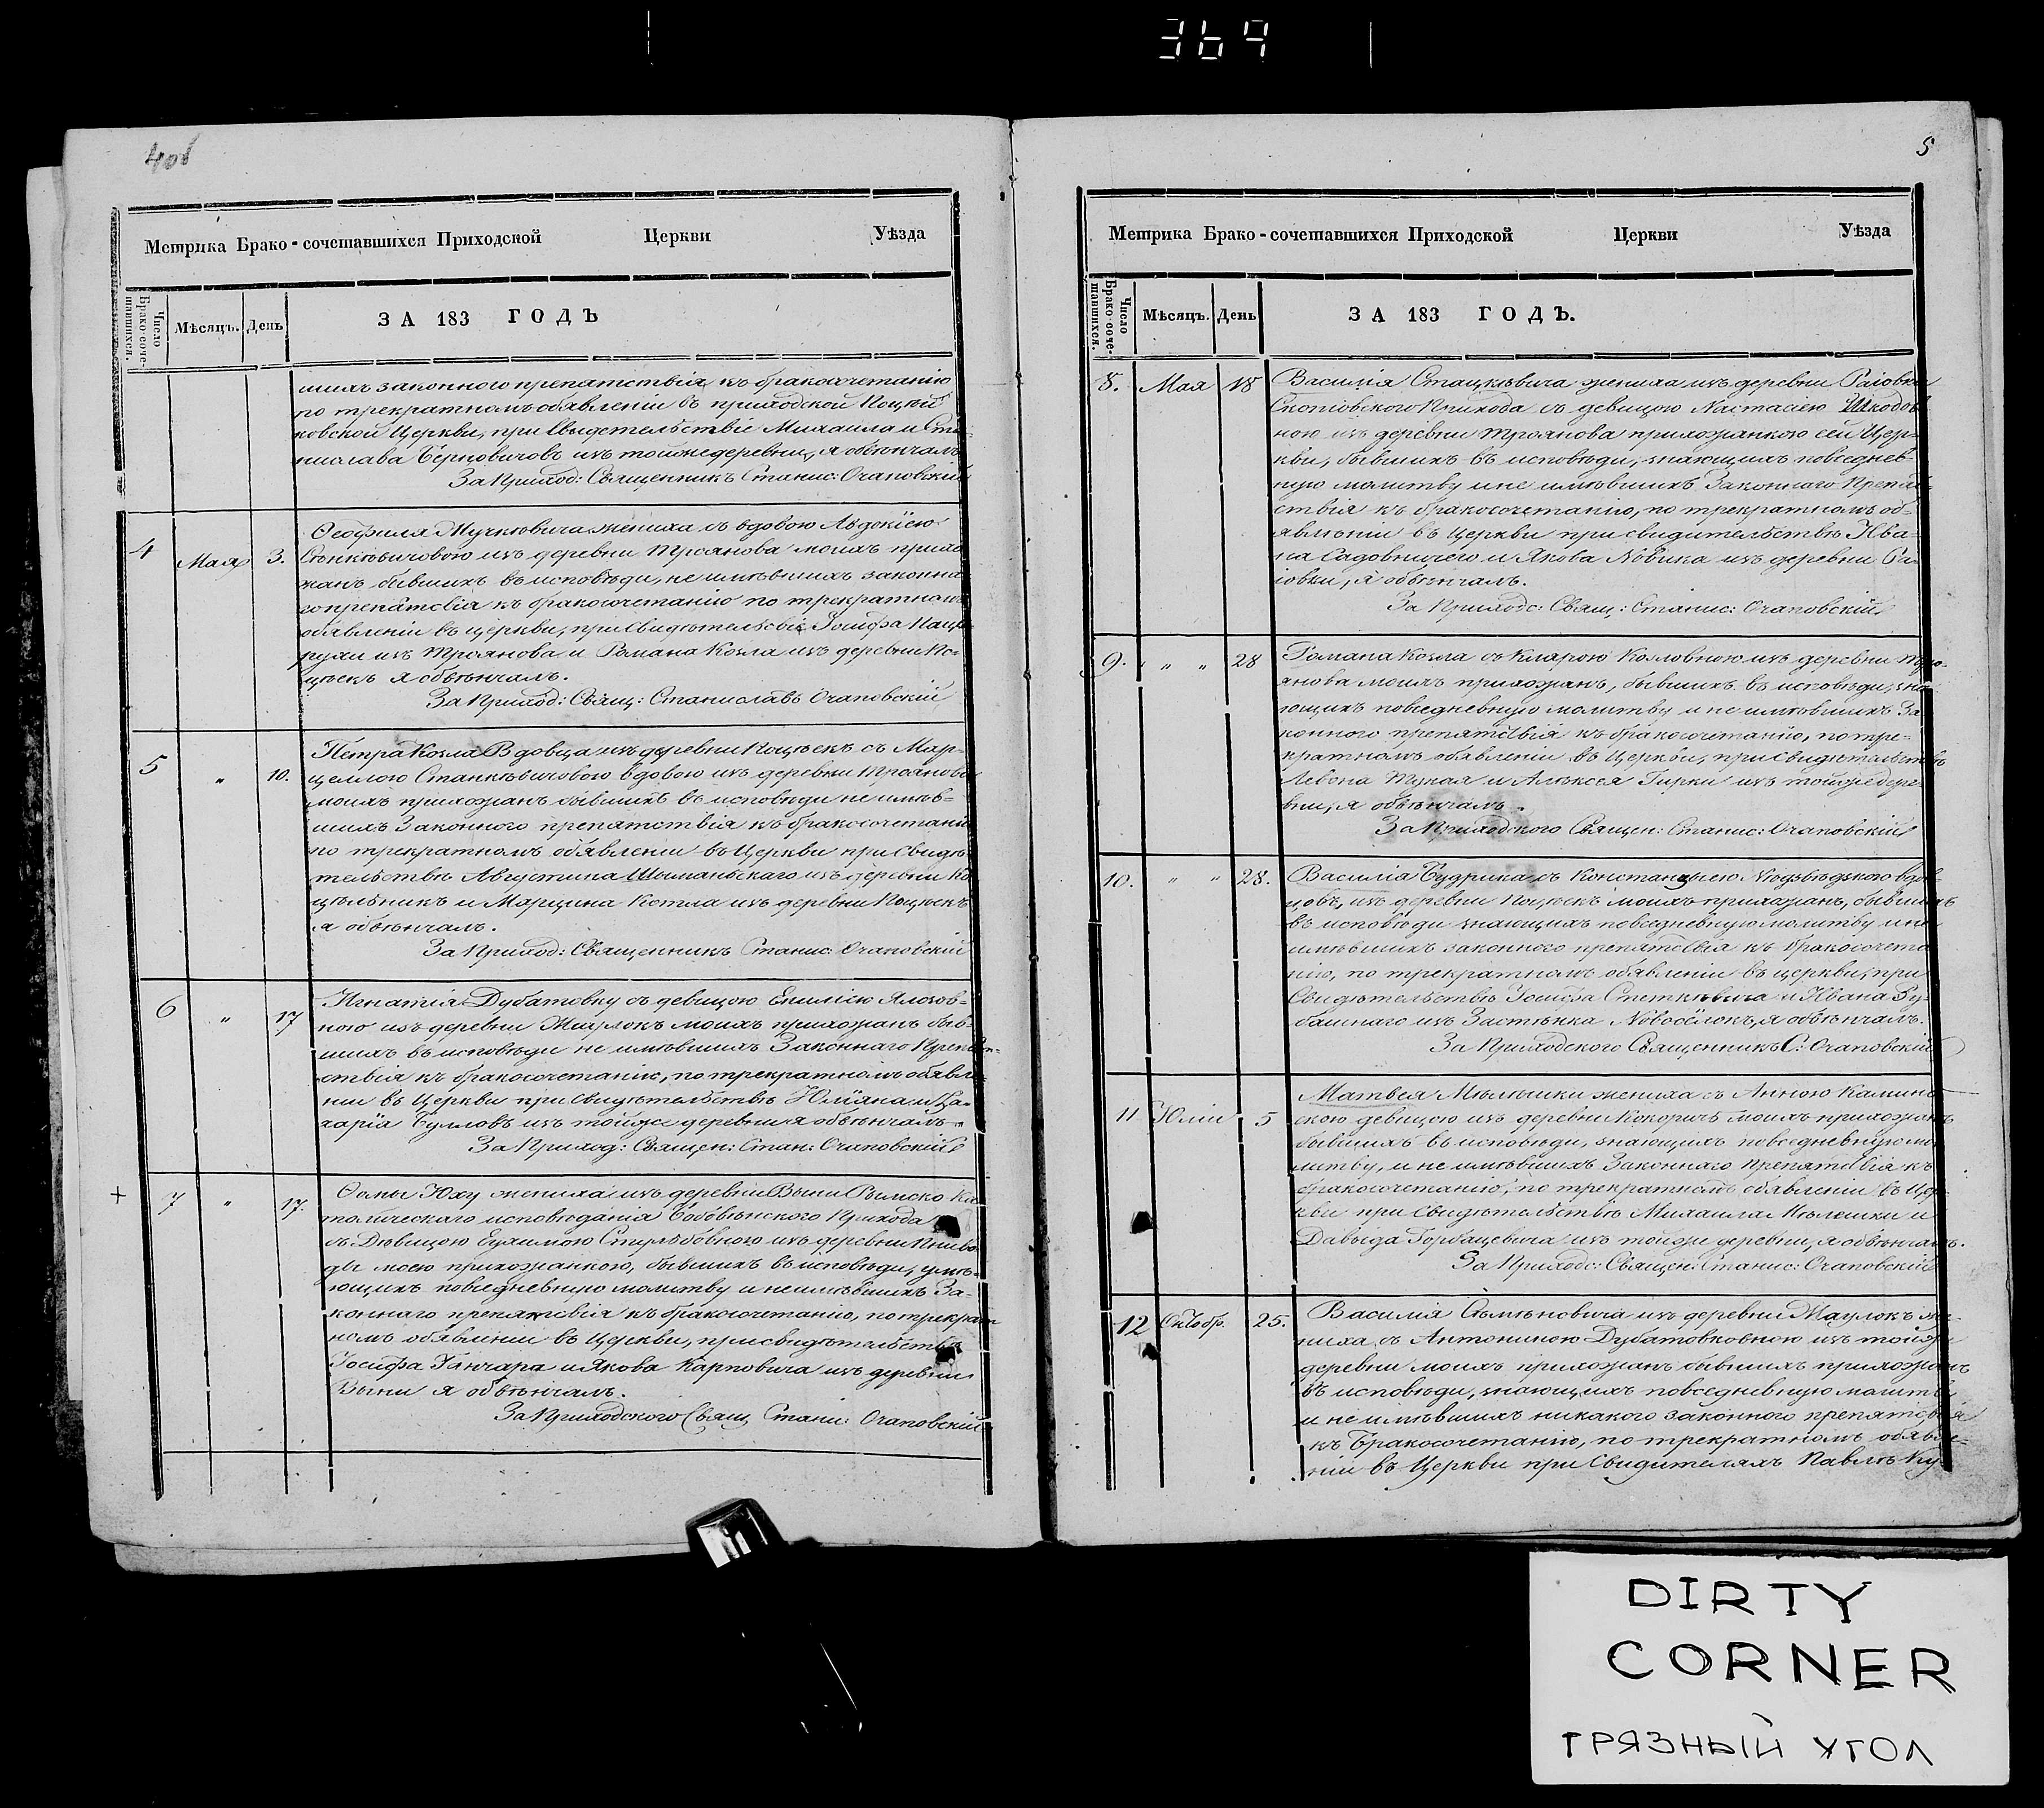 369
4об
Метрика Брако-сочетавшихся Приходской Церкви Уѣзда
Число Брако-соче-
тавшихся.
Мѣсяцъ. День
ЗА 183 ГОДЪ
шихъ законного препятствія къ бракосочетанію
по трекратномъ обявленіи въ приходской Поцѣй
ковской Церкви, при Свыдетельствѣ Михаила и Ста-
нислава Берновичовъ изъ тойже деревни, я обвѣнчалъ
За Приход: Священникъ Станис: Очаповскій
4 Мая 3. Ѳеофиля жениха съ вдовою Авдокіею
Станкѣвичовою изъ деревни Троянова моихъ прихо
жанъ бывшихъ въ исповѣди, не имѣвшихъ законна
го препятсвія къ бракосочетанію по трекратномъ
обявленіи въ церкви, при Свидѣтельсвіе Іосифа
изъ Троянова и Романа Козла изъ деревни По-
цѣекъ я обвѣнчалъ.
За Приход: Свящ: Станиславъ Очаповскій
5 " 10. Петра Козла Вдовца изъ деревни Поцѣекъ съ Мар-
целлою Станкѣвичовою вдовою изъ деревни Троянова
моихъ прихожанъ бывшихъ въ исповѣди не имѣв-
шихъ Законного препятствія къ бракосочетанію
по трекратномъ обявленіи въ Церкви при Свидѣ
тельствѣ Августина Шыманьскаго изъ деревни
и Марцина Котла изъ деревни Поцѣекъ
я обвѣнчалъ.
За Приход: Священникъ Станис: Очаповскій
6 " 17 Игнатія Дубатовку съ девицою Емиліею
ною изъ деревни моихъ прихожанъ быв-
шихъ въ исповѣди не имѣвшихъ Законнаго Препят-
ствія къ бракосочетанію, по трекратномъ обявле-
нии въ Церкви при Свидѣтельствѣ Юліяна и За-
харія Булловъ изъ тойже деревни я обвѣнчалъ.
За Приход: Священ: Стан: Очаповскій
+ 7 " 17. Ѳомы Юху жениха изъ деревни Выни Римско Ка-
толическаго исповѣданія Бобовѣнского Прихода
съ Дѣвицою Еухимою изъ деревни
ды моею прихожанкою, бывшихъ въ исповѣди, умѣ-
ющихъ повседневную молитву и неимѣвшихъ За-
коннаго препятсвія къ бракосочетанію, по трекрат
номъ обявленіи въ Церкви, при свидѣтельствѣ
Іосифа Ганчара и Якова Карповича изъ деревни
Выни я обвѣнчалъ.
За Приходского Свящ Стани: Очаповскій
5
Метрика Брако-сочетавшихся Приходской Церкви Уѣзда
Число Брако-соче-
тавшихся.
Мѣсяцъ. День
ЗА 183 ГОДЪ.
8. Мая 18 Василія Стацкѣвича жениха изъ деревни Раіовки
Прихода съ девицою Настасіею Шкодов
ною изъ деревни Троянова прихожанкою сей Цер-
кви, бывшихъ въ исповѣди, знающихъ повседнев-
ную молитву и не имѣвшихъ Законнаго Препят-
ствія къ бракосочетанію, по трекратномъ об-
явленіи въ Церкви при свидительствѣ Ива-
на Садовничего и Якова Новика изъ деревни Ра-
іовки, я обвѣнчалъ.
За Приходс: Свящ: Станис: Очаповскій
9. " " 28 Романа Козла съ Клярою Козловною изъ деревни Тро-
янова моихъ прихожанъ, бывшихъ въ исповѣди, зна-
ющихъ повседневную молитву и не имѣвшихъ За-
конного препятсвія къ бракосочетанію, по тре-
кратномъ обявленіи въ Церкви, при Свидѣтельствѣ
Левона и Алексея Гирки изъ тойже дере-
вни, я обвѣнчалъ.
За Приходского Священ: Станис: Очаповскій
10. " " 28. Василія Будрика съ Констанціею вдов-
цовъ, изъ деревни Поцѣекъ моихъ прихожанъ, бывшихъ
въ исповѣди знающихъ повседневную молитву и не
имѣвшихъ законного препятсвія къ бракосочета
нію, по трекратномъ обявленіи въ церкви, при
Свидѣтельствѣ Іосифа Стеткѣвича и Ивана Ру-
башнаго изъ Застѣнка Новосёлокъ, я обвѣнчалъ.
За Приходского Священникъ С: Очаповскій
11 Юліи 5 Матвея жениха съ Анною Камин-
скою девицою изъ деревни Кокоричъ моихъ прихожанъ
бывшихъ въ исповѣди, знающихъ повседневную мо-
литву, и не имѣвшихъ Законнаго Препятсвія къ
бракосочетанію, по трекратномъ обявленіи въ Цер-
кви при Свидѣтельствѣ Михаила и
Давыда Горбацевича изъ тойже деревни, я обвѣнчалъ.
За Приходс: Священ: Станис: Очаповскій
12 Октобр. 25. Василія Сѣмѣновича изъ деревни же-
ниха съ Антониною Дубатовковною изъ тойже
деревни моихъ прихожанъ бывшихъ прихожанъ
въ исповѣди, знающихъ повседневную молитву
и не имѣвшихъ никакого законного препятсвія
къ Бракосочетанію, по трекратномъ обявле-
ніи въ Церкви при Свидителяхъ Павлѣ Ку
DIRTY
CORNER
ГРЯЗНЫЙ УГОЛ